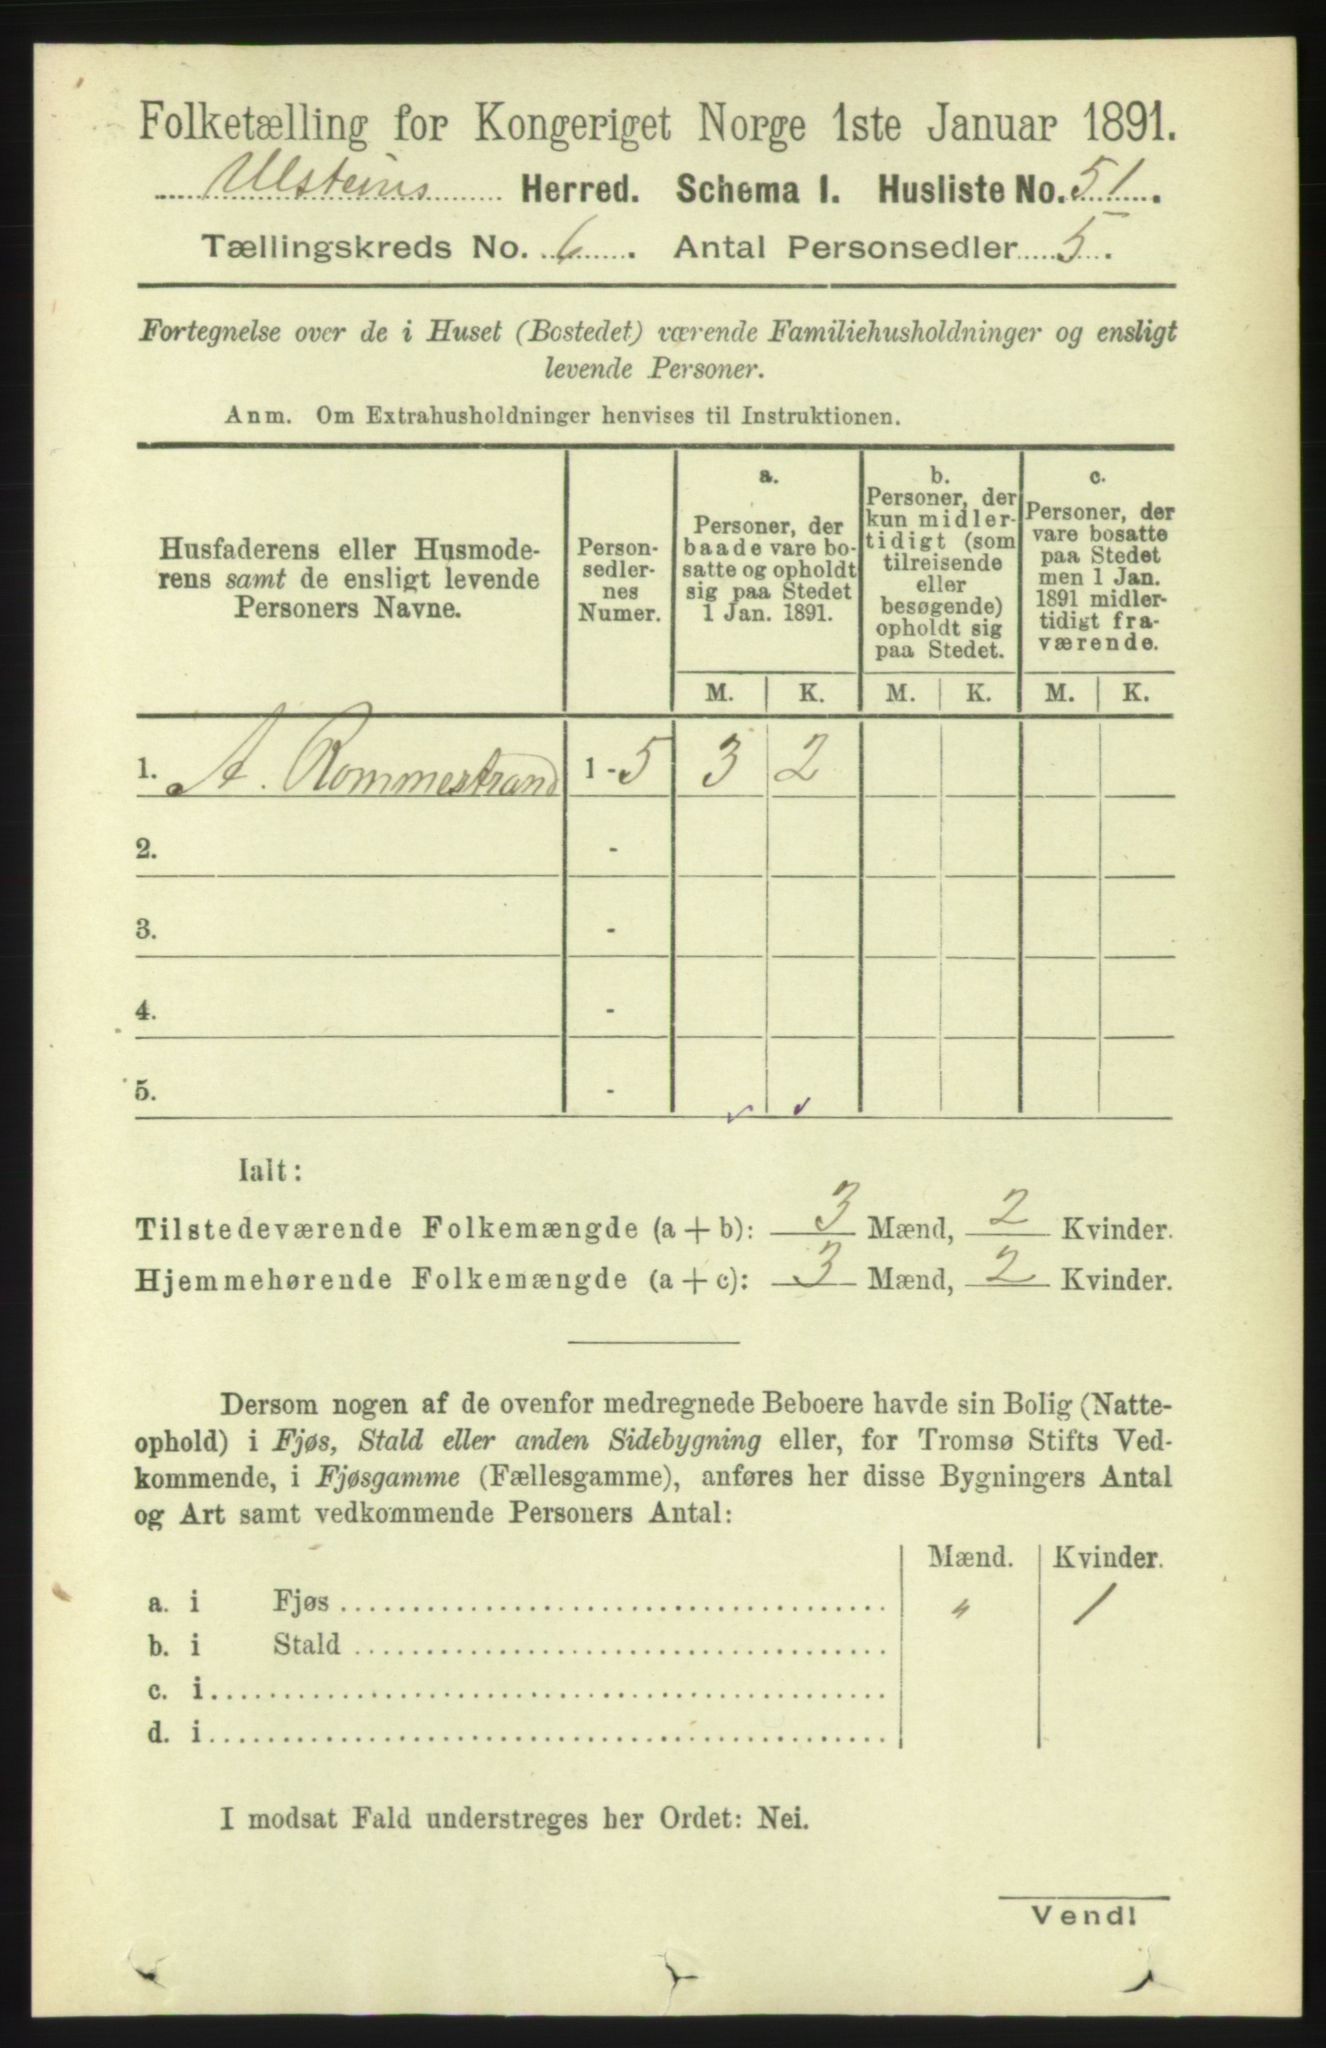 Folketælling for Kongeriget Norge 1ste Januar 1891.
Ulsteins Herred. Schema I. Husliste No. 51.
Tællingskreds No. 6. Antal Personsedler 5.
Fortegnelse over de i Huset (Bostedet) værende Familiehusholdninger og ensligt
levende Personer.
Anm. Om Extrahusholdninger henvises til Instruktionen.
Husfaderens eller Husmode-
rens samt de ensligt levende
Personers Navne.
Person-
sedler-
nes
Numer.
a.
Personer, der
baade vare bo-
satte og opholdt
sig paa Stedet
1 Jan. 1891.
b.
Personer, der
kun midler-
tidigt (som
tilreisende
eller
besøgende)
opholdt sig
paa Stedet.
c.
Personer, der
vare bosatte
paa Stedet
men 1 Jan.
1891 midler-
tidigt fra-
værende.
M. K. M. K. M. K.
1. A. Rommestrand 1 - 5 3 2
2. -
3. -
4. -
5. -
Ialt:
Tilstedeværende Folkemængde (a + b): 3 Mænd, 2 Kvinder.
Hjemmehørende Folkemængde (a + c): 3 Mænd, 2 Kvinder.
Dersom nogen af de ovenfor medregnede Beboere havde sin Bolig (Natte-
ophold) i Fjøs, Stald eller anden Sidebygning eller, for Tromsø Stifts Ved-
kommende, i Fjøsgamme (Fællesgamme), anføres her disse Bygningers Antal
og Art samt vedkommende Personers Antal:
Mænd. Kvinder.
a. i Fjøs " 1
b. i Stald
c. i
d. i
I modsat Fald understreges her Ordet: Nei.
Vend!